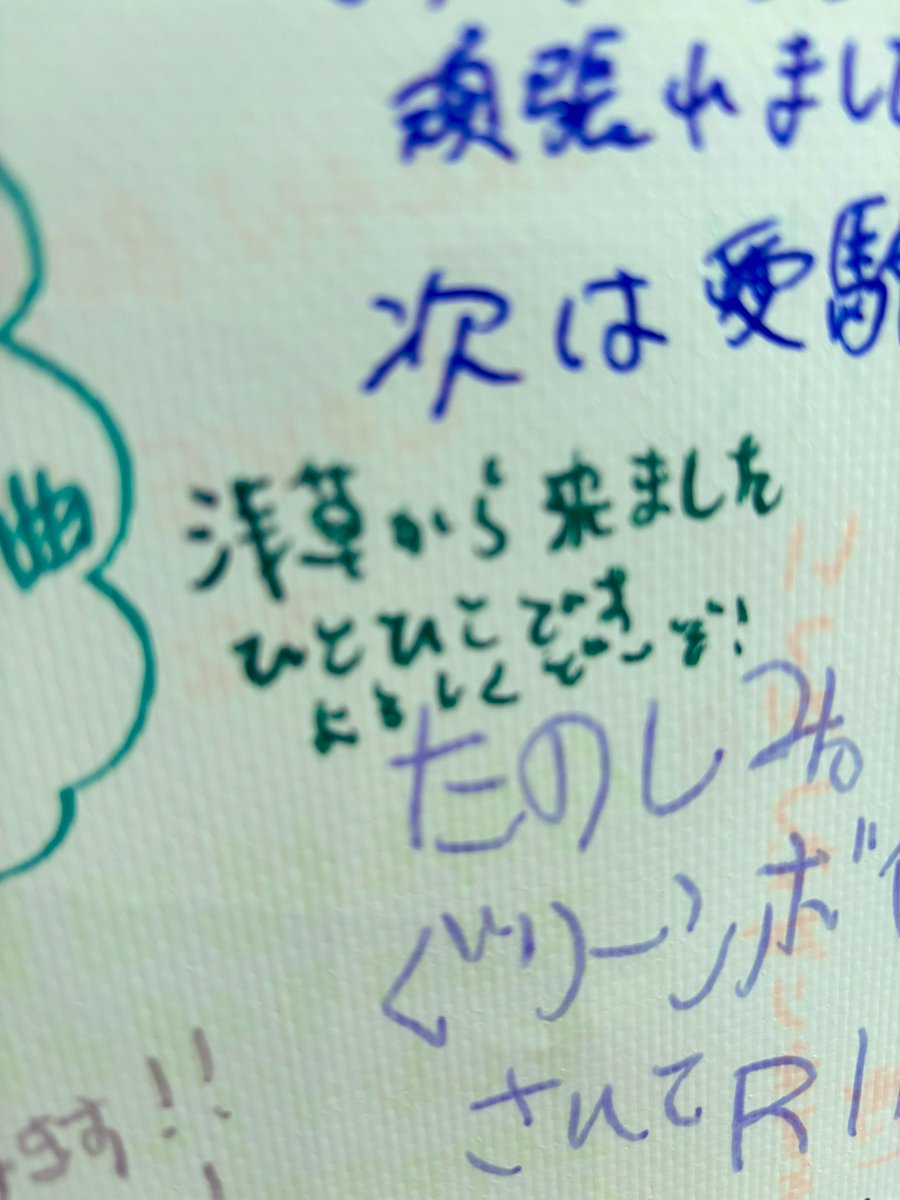 頑張れまし
次は受験
浅草から来ました
ひとひこです
よろしくどーぞ!
たのしみ。
グリーンボ
されてRI
ます!!